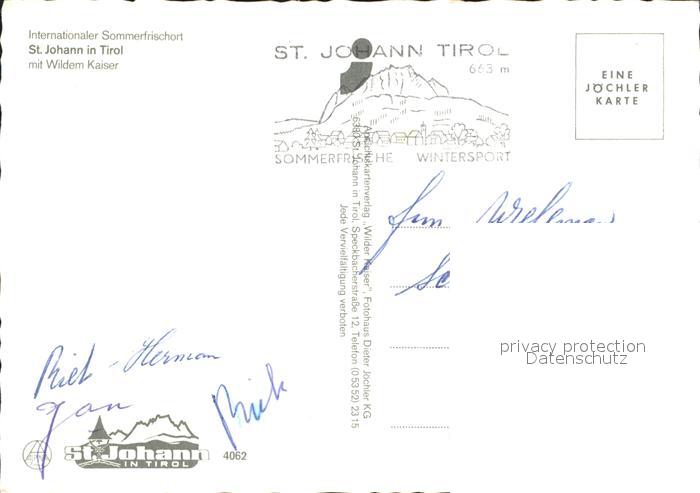 Internationaler Sommerfrischort
St. Johann in Tirol
mit Wildem Kaiser
ST. JOHANN TIROL
663 m
SOMMERFRISCHE WINTERSPORT
EINE
JÖCHLER
KARTE
Ansichtskartenverlag „Wilder Kaiser", Fotohaus Dieter Jöchler KG
6380 St. Johann in Tirol, Speckbacherstraße 12, Telefon (05352) 2315
Jede Vervielfältigung verboten
privacy protection
Datenschutz
Riet - Herman
Jan
Rick
St. Johann
IN TIROL
4062